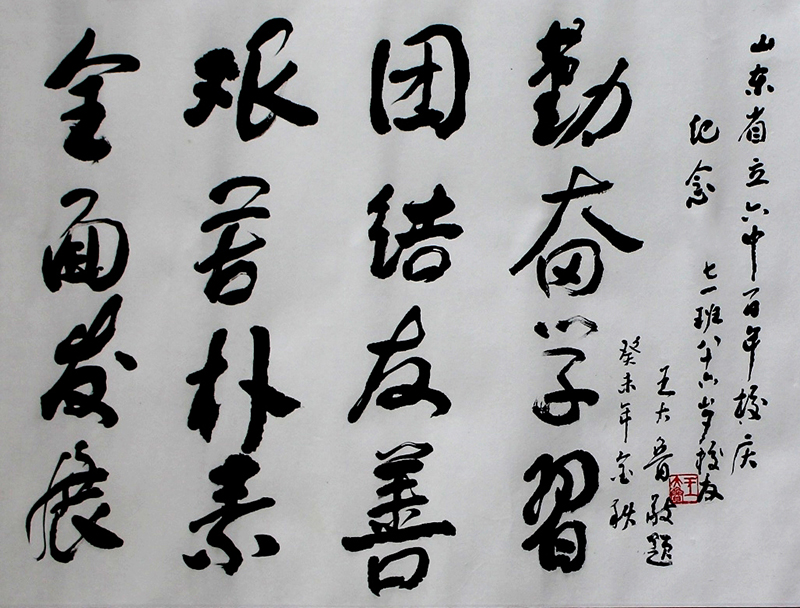 山东省立六中百年校庆
纪念
七一班八十六岁校友
王大鲁敬题
癸未年金秋
勤奋学習
团结友善
艰苦朴素
全面发展